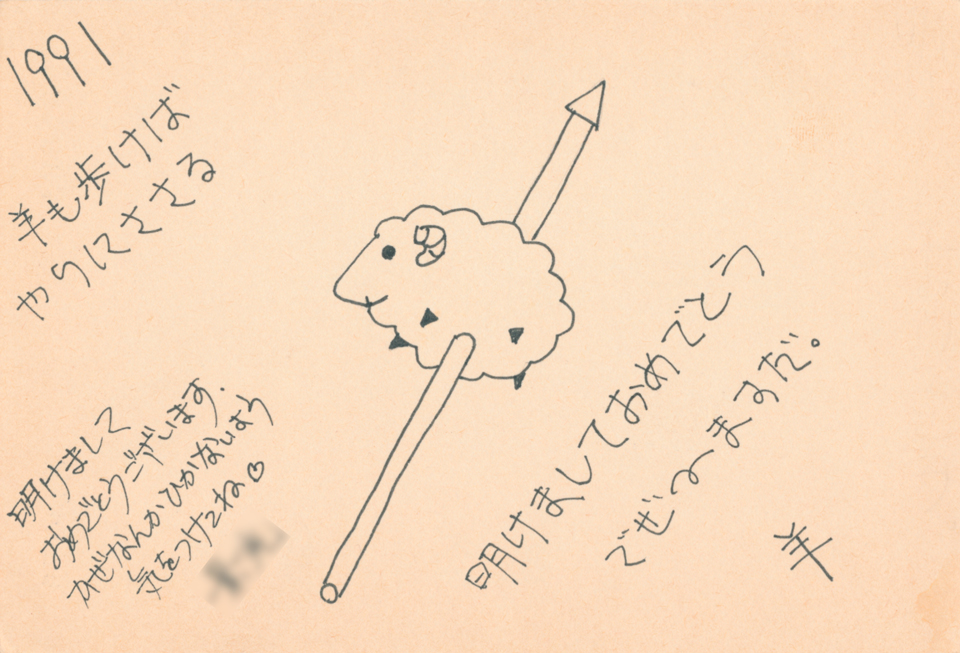 1991
羊も歩けば
やりにささる
明けましておめでとう
でぜぇーますだ。
羊
明けまして
おめでとうございます.
かぜなんかひかないよう
気をつけてね